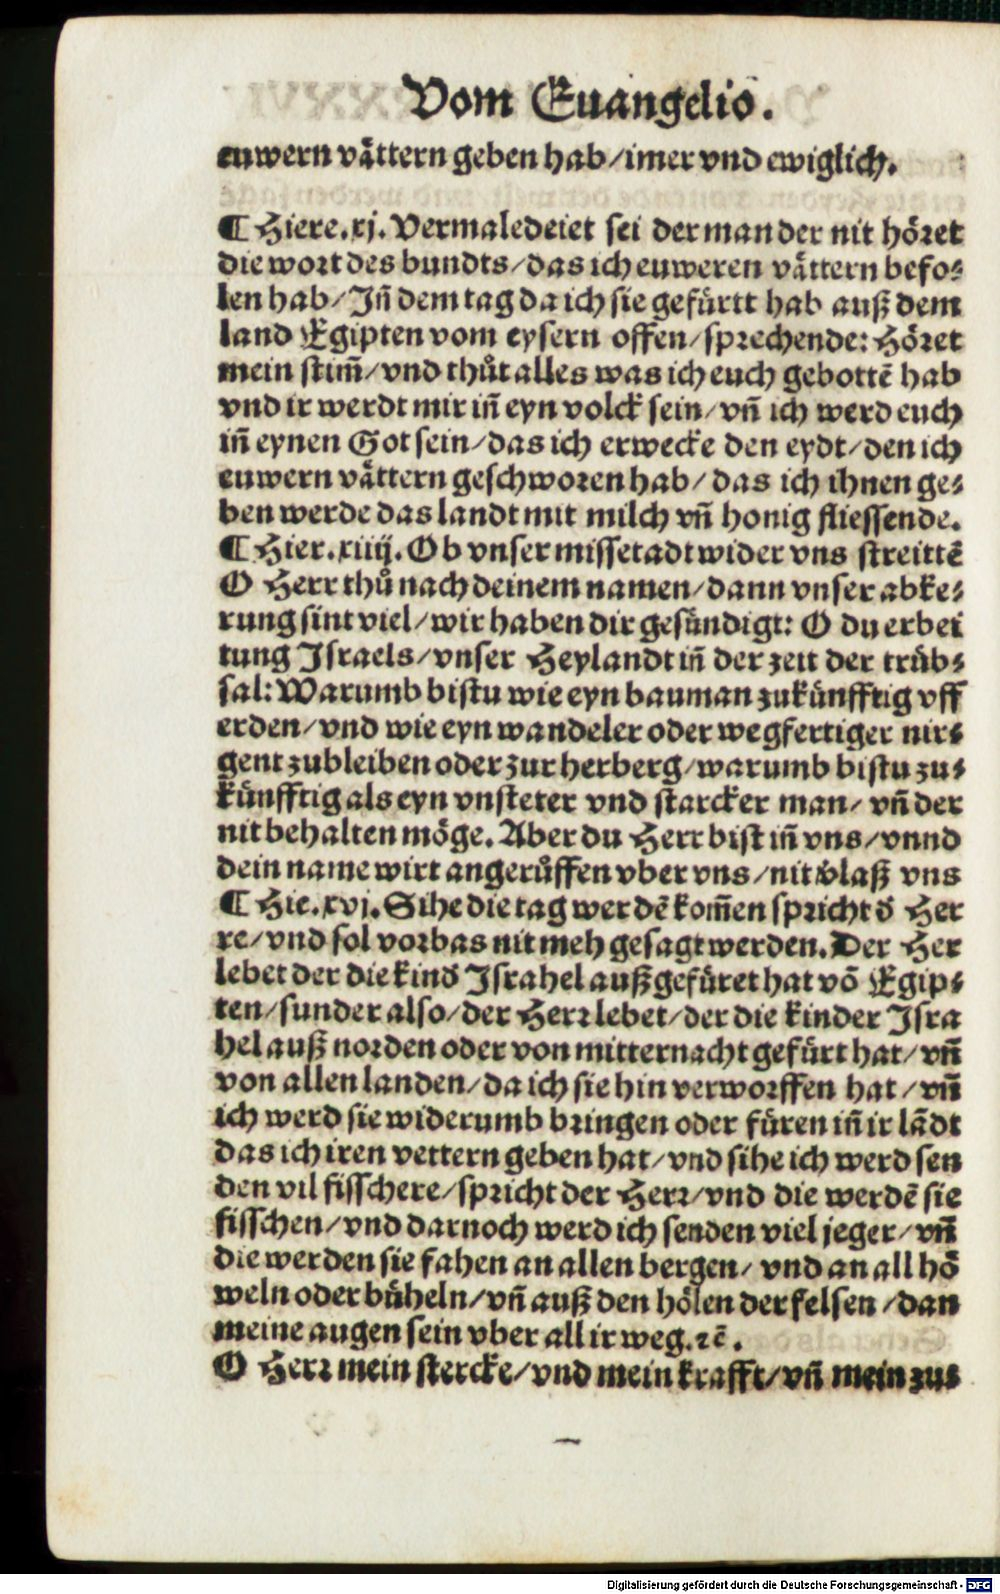 Vom Euangelio.
euwern vǎttern geben hab/imer vnd ewiglich.
¶ Hiere.xj. Vermaledeiet sei der man der nit hoͤret
die wort des bundts/das ich euweren vaͤttern befo-
len hab/Jn̄ dem tag da ich sie gefuͤrtt hab auß dem
land Egipten vom eysern offen/sprechende: Hoͤret
mein stim̄/vnd thuͤt alles was ich euch gebottē hab
vnd ir werdt mir in̄ eyn volck sein/vn̄ ich werd euch
in̄ eynen Got sein/das ich erwecke den eydt/den ich
euwern vaͤttern geschworen hab/das ich ihnen ge-
ben werde das landt mit milch vn̄ honig fliessende.
¶ Hier.xiiij. Ob vnser missetadt wider vns streittē
O Herr thuͦ nach deinem namen/dann vnser abke-
rung sint viel/wir haben dir gesündigt: O du erbei
tung Israels/vnser Heylandt in̄ der zeit der truͤb-
sal: Warumb bistu wie eyn bauman zukünfftig vff
erden/vnd wie eyn wandeler oder wegfertiger nir-
gent zubleiben oder zur herberg/warumb bistu zu-
künfftig als eyn vnsteter vnd starcker man/vn̄ der
nit behalten moͤge. Aber du Herr bist in̄ vns/vnnd
dein name wirt angeruͦffen vber vns/nit v̄laß vns
¶ Hie.xvj. Sihe die tag werdē kom̄en spricht d̄ Her
re/vnd sol vorbas nit meh gesagt werden. Der Her
lebet der die kind̄ Israhel auß gefuͤret hat vō Egip-
ten/sunder also/der Herr lebet/der die kinder Isra
hel auß norden oder von mitternacht gefuͤrt hat/vn̄
von allen landen/da ich sie hin verworffen hat/vn̄
ich werd sie widerumb bringen oder fuͤren in̄ ir lādt
das ich iren vettern geben hat/vnd sihe ich werd sen
den vil fisschere/spricht der Herr/vnd die werdē sie
fisschen/vnd darnoch werd ich senden viel jeger/vn̄
die werden sie fahen an allen bergen/vnd an all hoͤ
weln oder buͤheln/vn̄ auß den hoͤlen der felsen/dan
meine augen sein vber all ir weg.ꝛē.
O Herr mein stercke/vnd mein krafft/vn̄ mein zu-
Digitalisierung gefördert durch die Deutsche Forschungsgemeinschaft - DFG